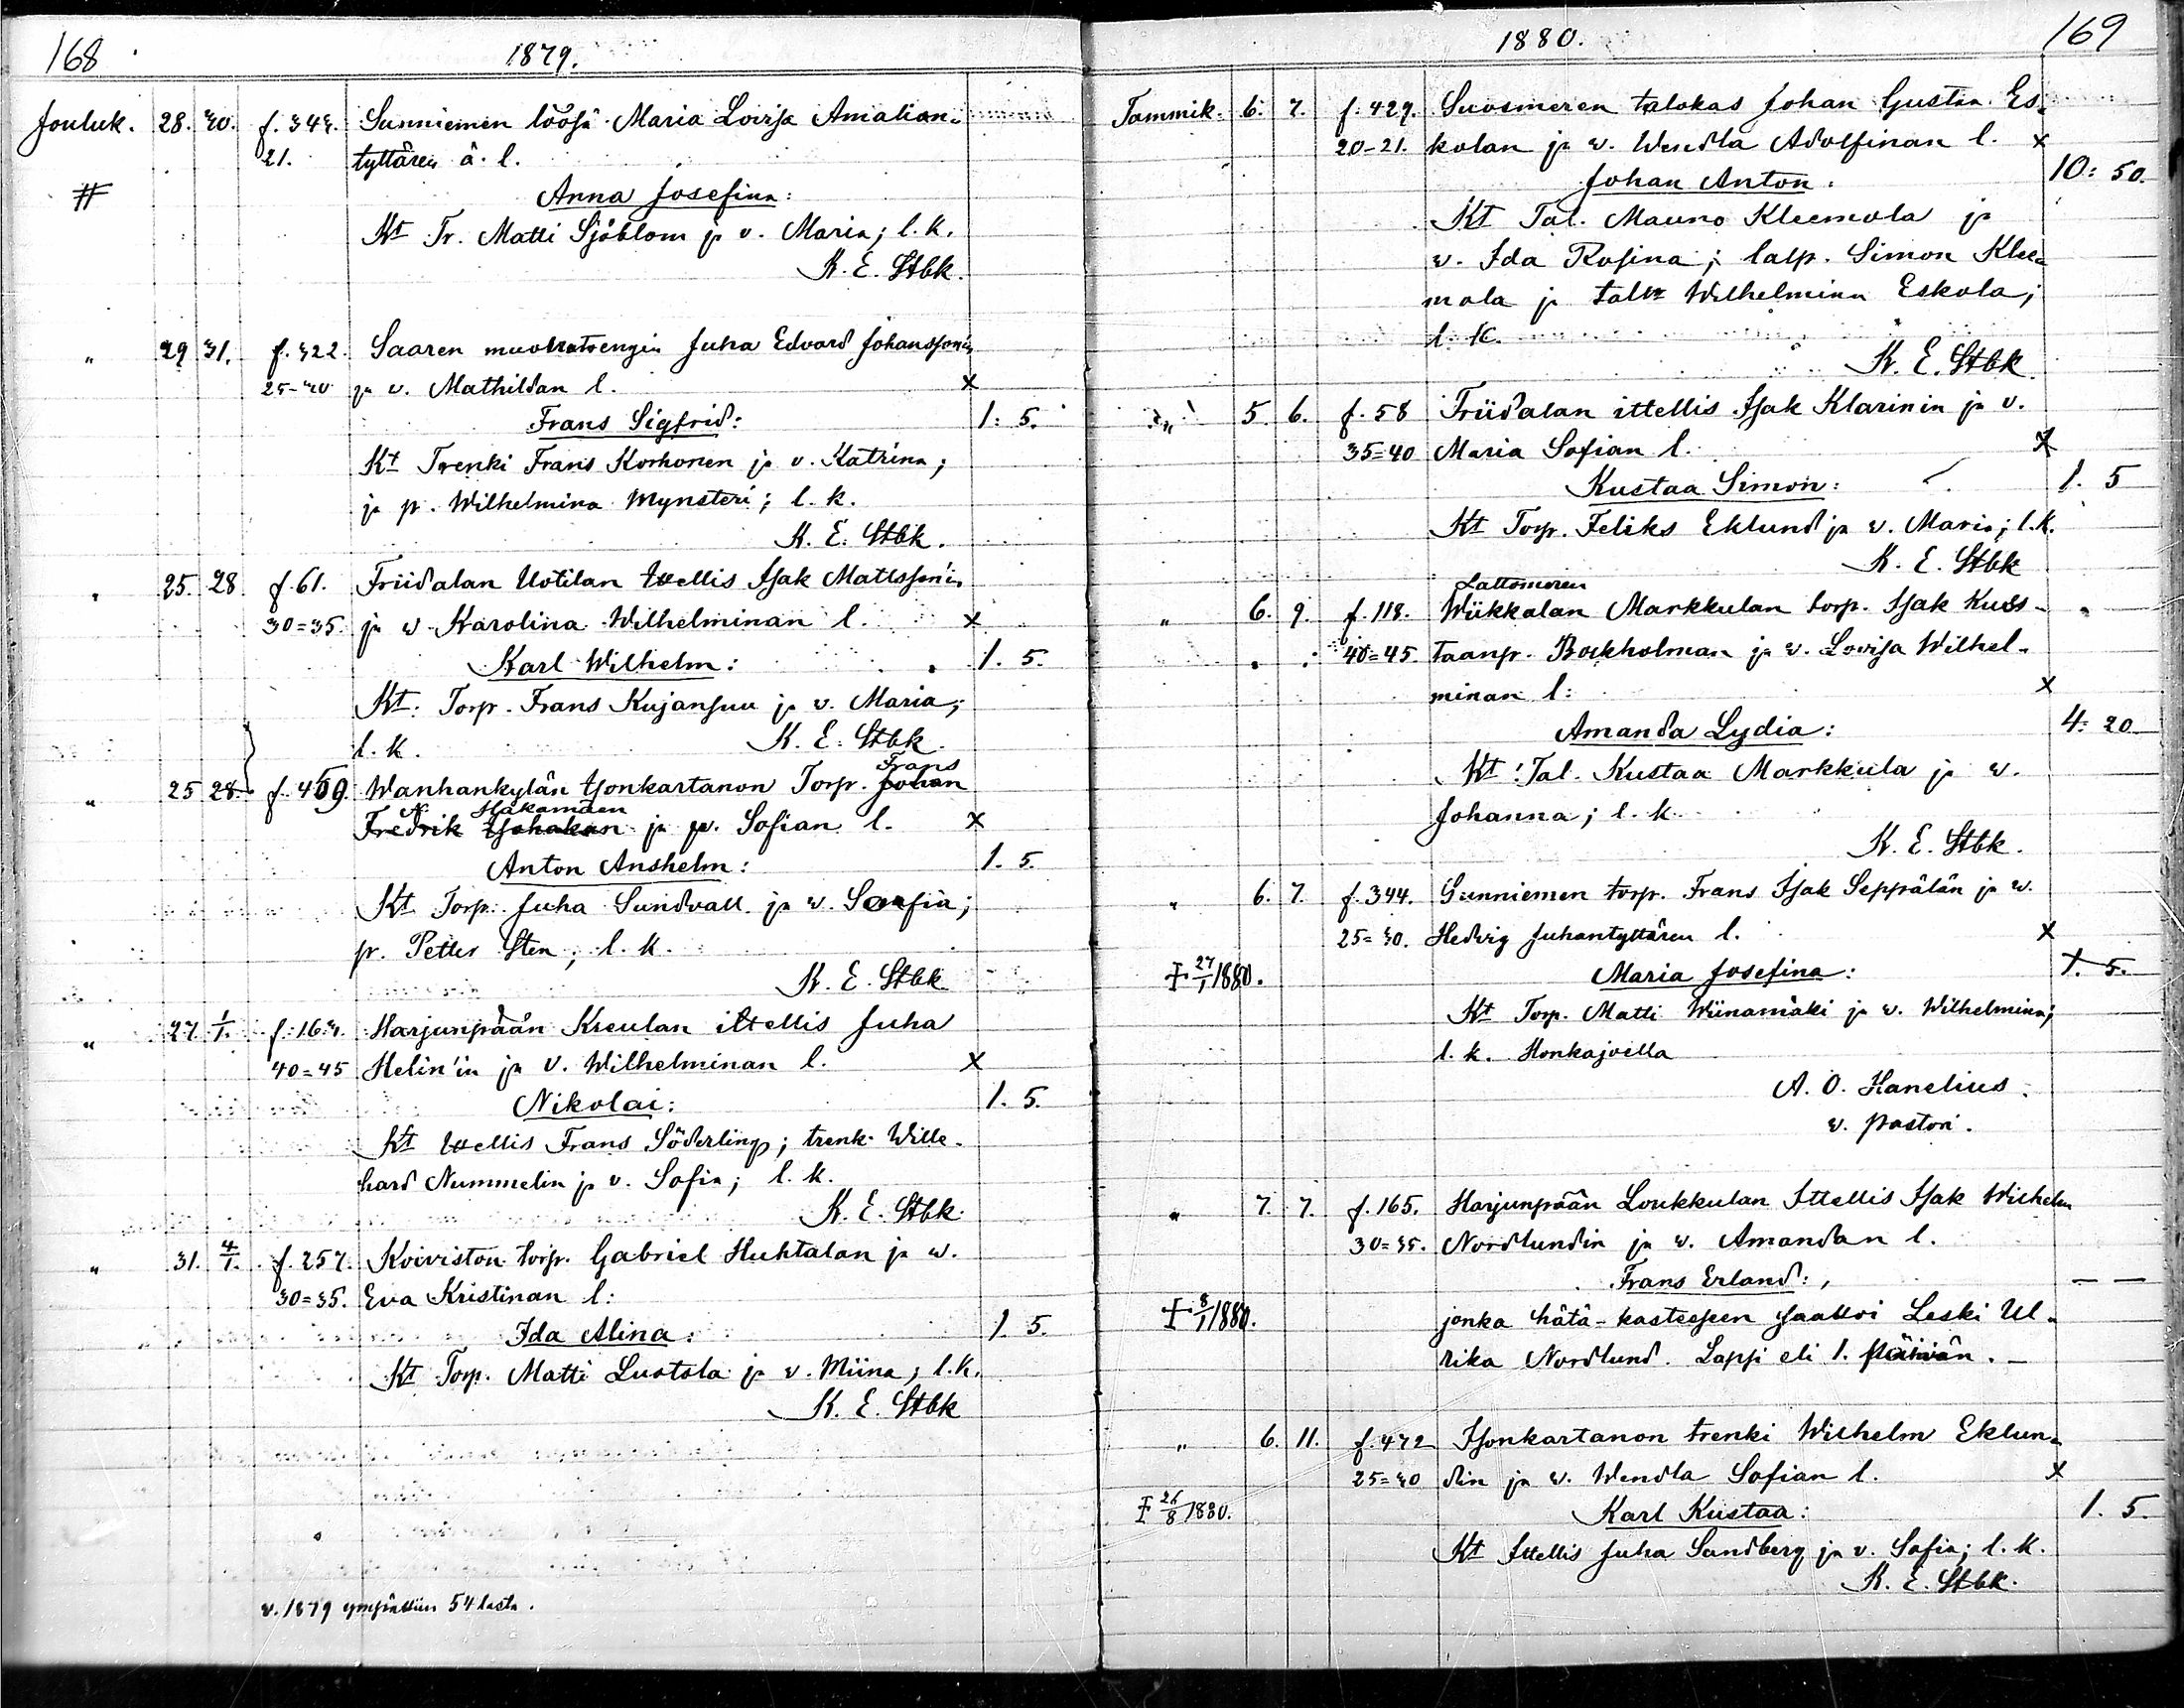 168 1879.
Jouluk. 28. 30. f. 343. Sunniemen löösä Maria Lovisa Amalian-
21. tyttären ä. l.
# Anna Josefina:
Kt Tr. Matti Sjöblom ja v. Maria; l. k.
K. E. Stbk.
" 29 31. f. 322. Saaren muonatrengin Juha Edvard Johanssonin
25-30 ja v. Mathildan l. x
Frans Sigfrid: 1. 5.
Kt Trenki Frans Korhonen ja v. Katrina;
ja p. Wilhelmina Mynsteri; l. k.
K. E. Stbk.
" 25. 28. f. 61. Friidalan Uotilan Itellis Isak Matlsson'in
30=35. ja w. Karolina Wilhelminan l. x
Karl Wilhelm: 1. 5.
Kt: Torp. Frans Kujansuu ja v. Maria;
l. k. K. E. Stbk.
Frans
" 25 28. f. 459. Wanhankylän Isonkartanon Torp. Johan
Hakamäen
Fredrik Isohakan ja w. Sofian l. x
Anton Anshelm: 1. 5.
Kt Torp. Juha Sundvall ja w. Soofia;
p. Petter Sten; l. k.
K. E. Stbk
" 27. 1/1. f. 163. Harjunpään Kreulan ittellis Juha
40=45 Helin'in ja v. Wilhelminan l. x
Nikolai: 1. 5.
Kt Itellis Frans Söderling; trenk. Wille-
hard Nummelin ja v. Sofia; l. k.
K. E. Stbk.
" 31. 4/1. f. 257. Koiviston torp. Gabriel Huhtalan ja w.
30=35. Eva Kristinan l:
Ida Alina: 1. 5.
Kt Torp. Matti Luotola ja v. Miina; l. k.
K. E. Stbk
v. 1879 ympättiin 54 lasta.
1880. 169
Tammik. 6. 7. f. 429. Suosmeren talokas Johan Gustaa Es-
20-21. kolan ja w. Wendla Adolfinan l. x
Johan Anton: 10: 50.
Kt Tal. Mauno Kleemola ja
w. Ida Rosina; talp. Simon Klee-
mola ja taltr Wilhelmina Eskola;
l. k.
K. E. Stbk
" 5. 6. f. 58 Friidalan ittellis Isak Klarinin ja v.
35=40 Maria Sofian l. x
Kustaa Simon: 1. 5
Kt Torp. Feliks Eklund ja w. Maria; l. k.
K. E. Stbk
Lattomeren
" 6. 9. f. 118. Wiikkalan Markkulan torp. Isak Kus-
40=45. taanp. Bockholman ja w. Lovisa Wilhel-
minan l: x
Amanda Lydia: 4. 20
Kt: Tal. Kustaa Markkula ja w.
Johanna; l. k.
K. E. Stbk.
" 6. 7. f. 344. Sunniemen torp. Frans Isak Seppälän ja w.
25=30. Hedvig Juhantyttären l. x
27/1 1880. Maria Josefina: 1. 5.
Kt Torp. Matti Wiinamäki ja w. Wilhelmina;
l. k. Honkajoella
A. O. Hanelius.
v. pastori.
" 7. 7. f. 165. Harjunpään Loukkulan Ittellis Isak Wilhelm
30=35. Nordlundin ja w. Amandan l.
Frans Erland: — —
8/1 1880. jonka hätä-kasteesen saattoi Leski Ul-
rika Nordlund. Lapsi eli 1. päivän. —
" 6. 11. f. 472 Isonkartanon trenki Wilhelm Eklun-
25=30 din ja w. Wendla Sofian l. x
26/8 1880. Karl Kustaa: 1. 5.
Kt Ittellis Juha Sandberg ja v. Sofia; l. k.
K. E. Stbk.